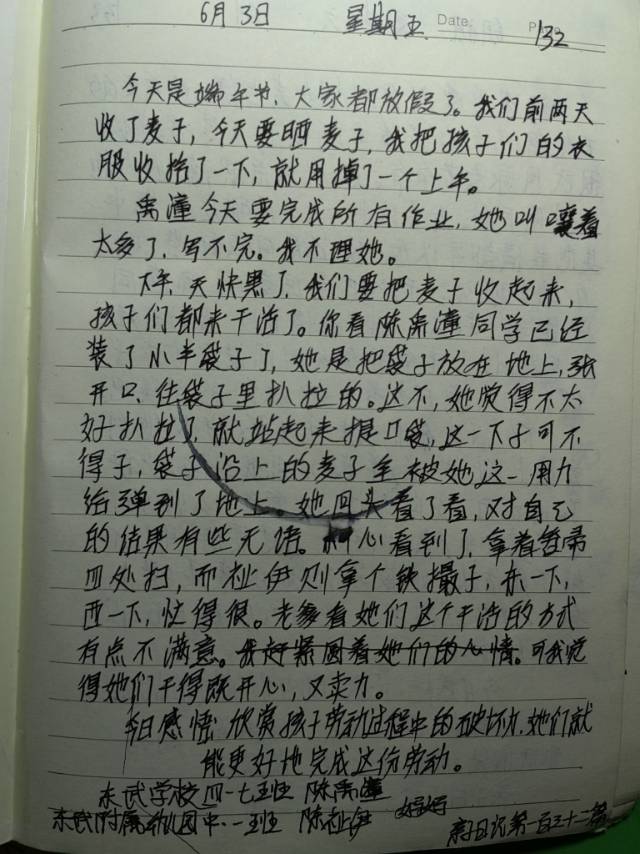 6月3日 星期五 Date. P 132
今天是端午节,大家都放假了。我们前两天
收了麦子,今天要晒麦子,我把孩子们的衣
服收拾了一下,就用掉了一个上午。
禹潼今天要完成所有作业,她叫嚷着
太多了,写不完。我不理她。
下午,天快黑了,我们要把麦子收起来,
孩子们都来干活了。你看陈禹潼同学已经
装了小半袋子了,她是把袋子放在地上,张
开口,往袋子里扒拉的。这不,她觉得不太
好扒拉了,就站起来提口袋,这一下子可不
得了,袋子沿上的麦子全被她这一用力
给弹到了地上。她回头看了看,对自己
的结果有些无语。心看到了,拿着笤帚
四处扫,而祉伊则拿个铁撮子,东一下,
西一下,忙得很。老爹看她们这个干活的方式
有点不满意。我赶紧圆着她们的心情。可我觉
得她们干得既开心,又卖力。
今日感悟 欣赏孩子劳动过程中的破坏力,她们就
能更好地完成这份劳动。
东武学校四·七班 陈禹潼
东武附属幼儿园中·一班 陈祉伊 妈妈 亲子日记第一百三十二篇